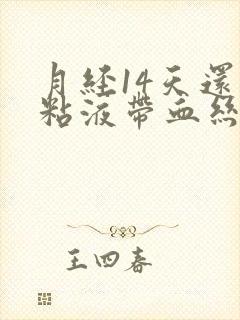 月经14天還
粘液帶血絲
王四春